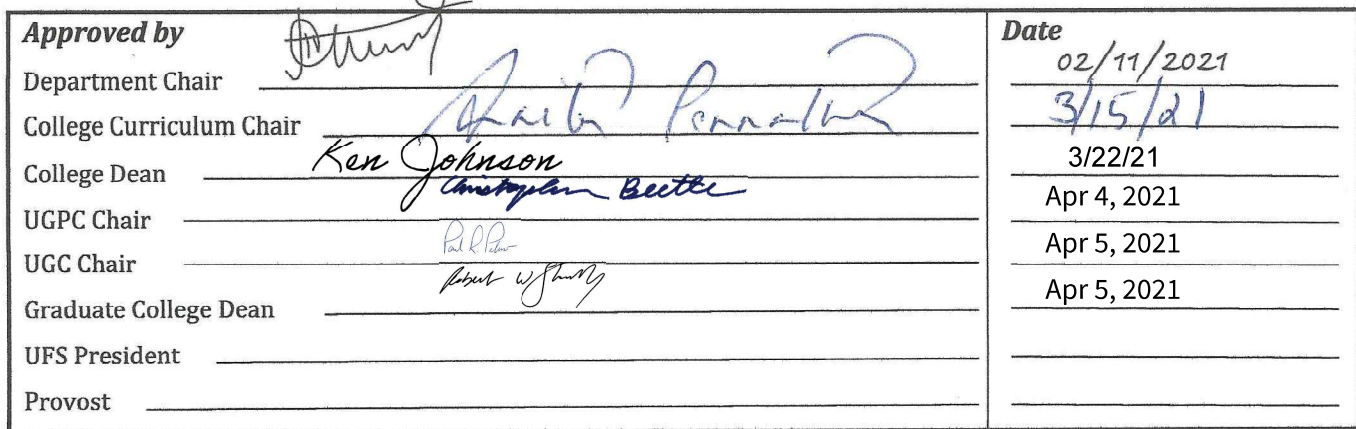 Approved by Date
Department Chair 02/11/2021
College Curriculum Chair 3/15/21
College Dean Ken Johnson 3/22/21
UGPC Chair Apr 4, 2021
UGC Chair Apr 5, 2021
Graduate College Dean Robert W Apr 5, 2021
UFS President
Provost